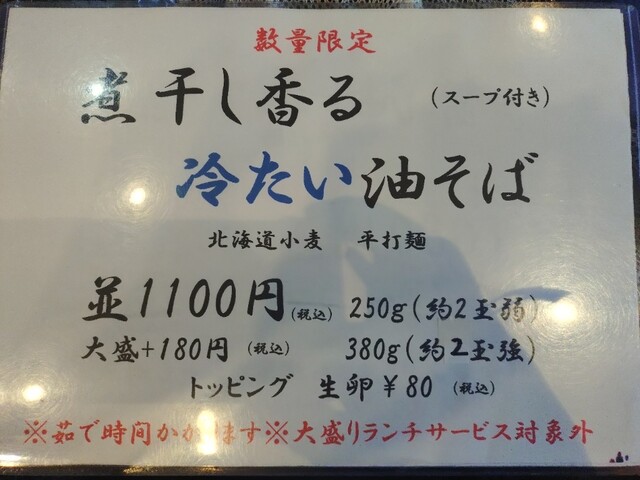 数量限定
煮干し香る （スープ付き）
冷たい油そば
北海道小麦 平打麺
並1100円（税込） 250g（約2玉弱）
大盛+180円（税込） 380g（約2玉強）
トッピング 生卵￥80（税込）
※茹で時間かかります※大盛りランチサービス対象外